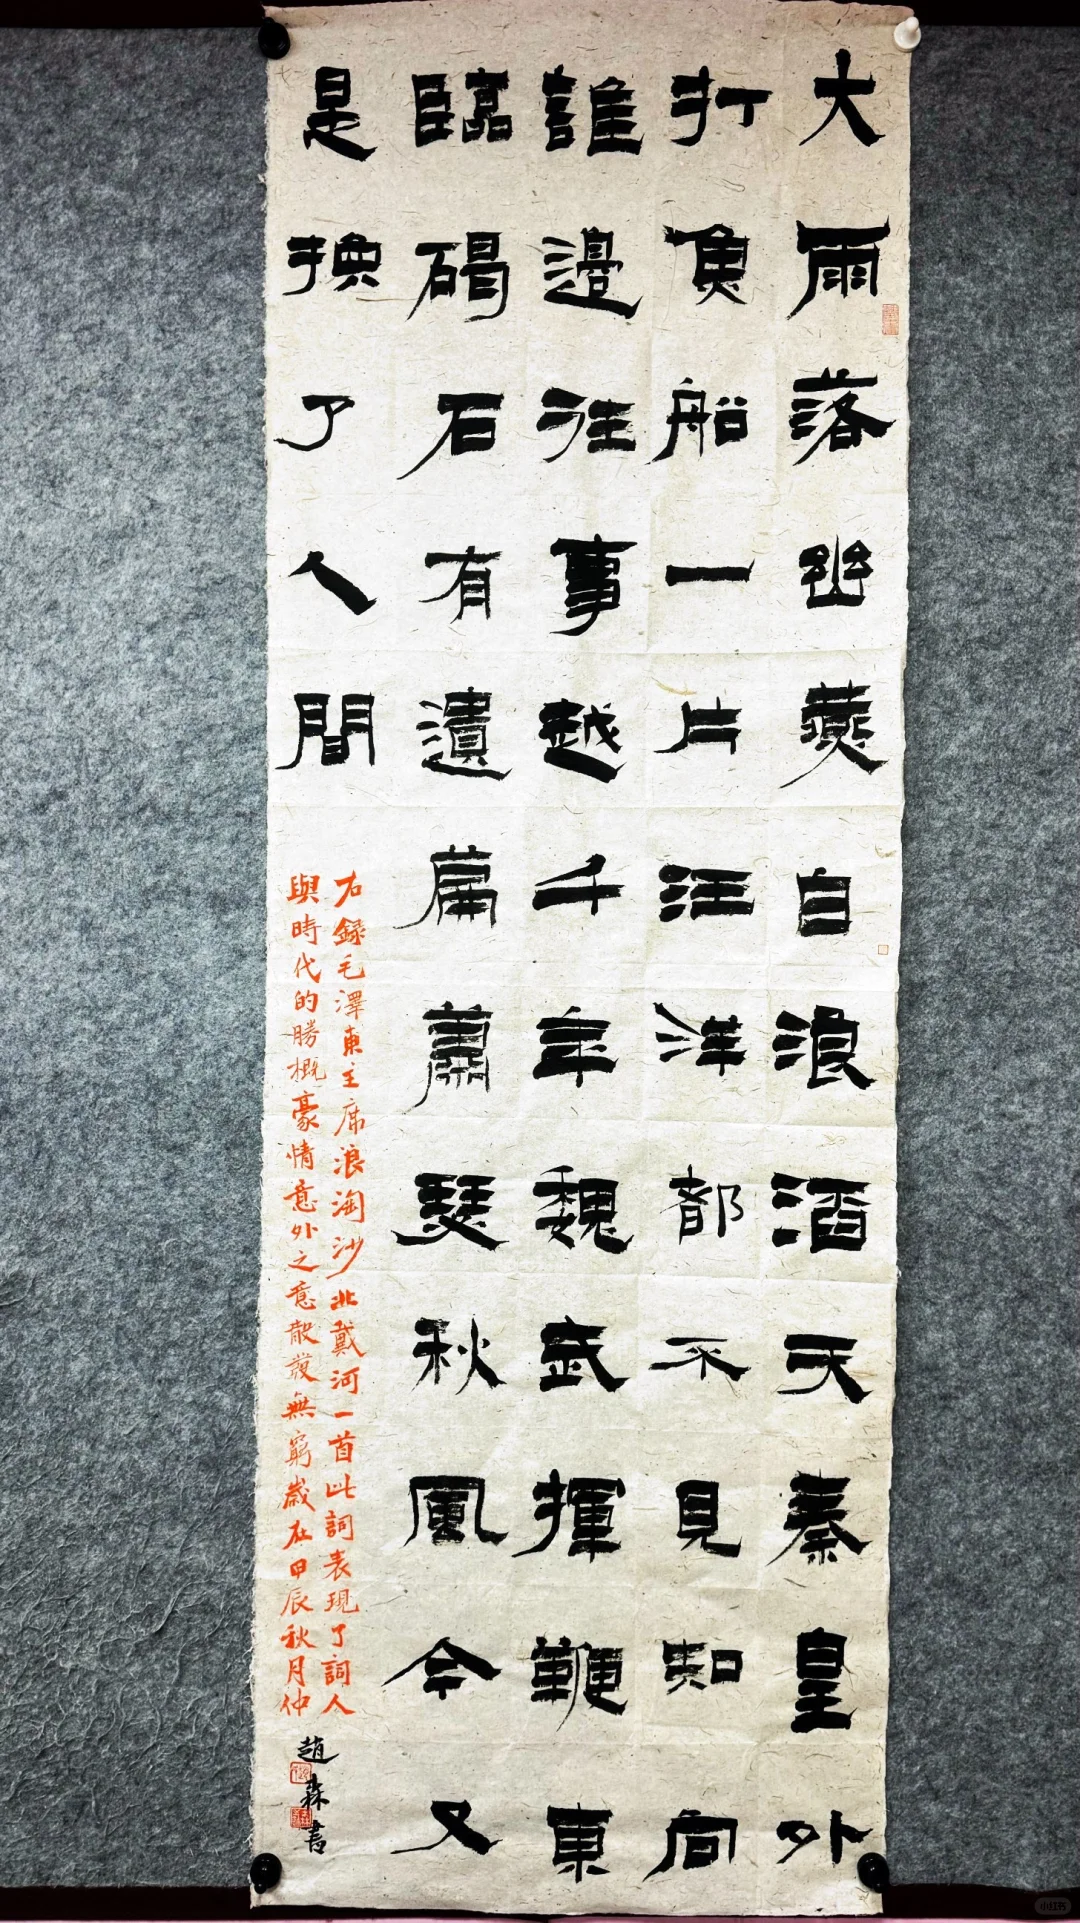 大雨落幽燕白浪滔天秦皇外
打魚船一片汪洋都不見知向
誰邊往事越千年魏武揮鞭東
臨碣石有遺篇蕭瑟秋風今又
是換了人間
右錄毛澤東主席浪淘沙北戴河一首此詞表現了詞人
與時代的勝概豪情意外之意散發無窮歲在甲辰秋月仲
趙森書
小红书